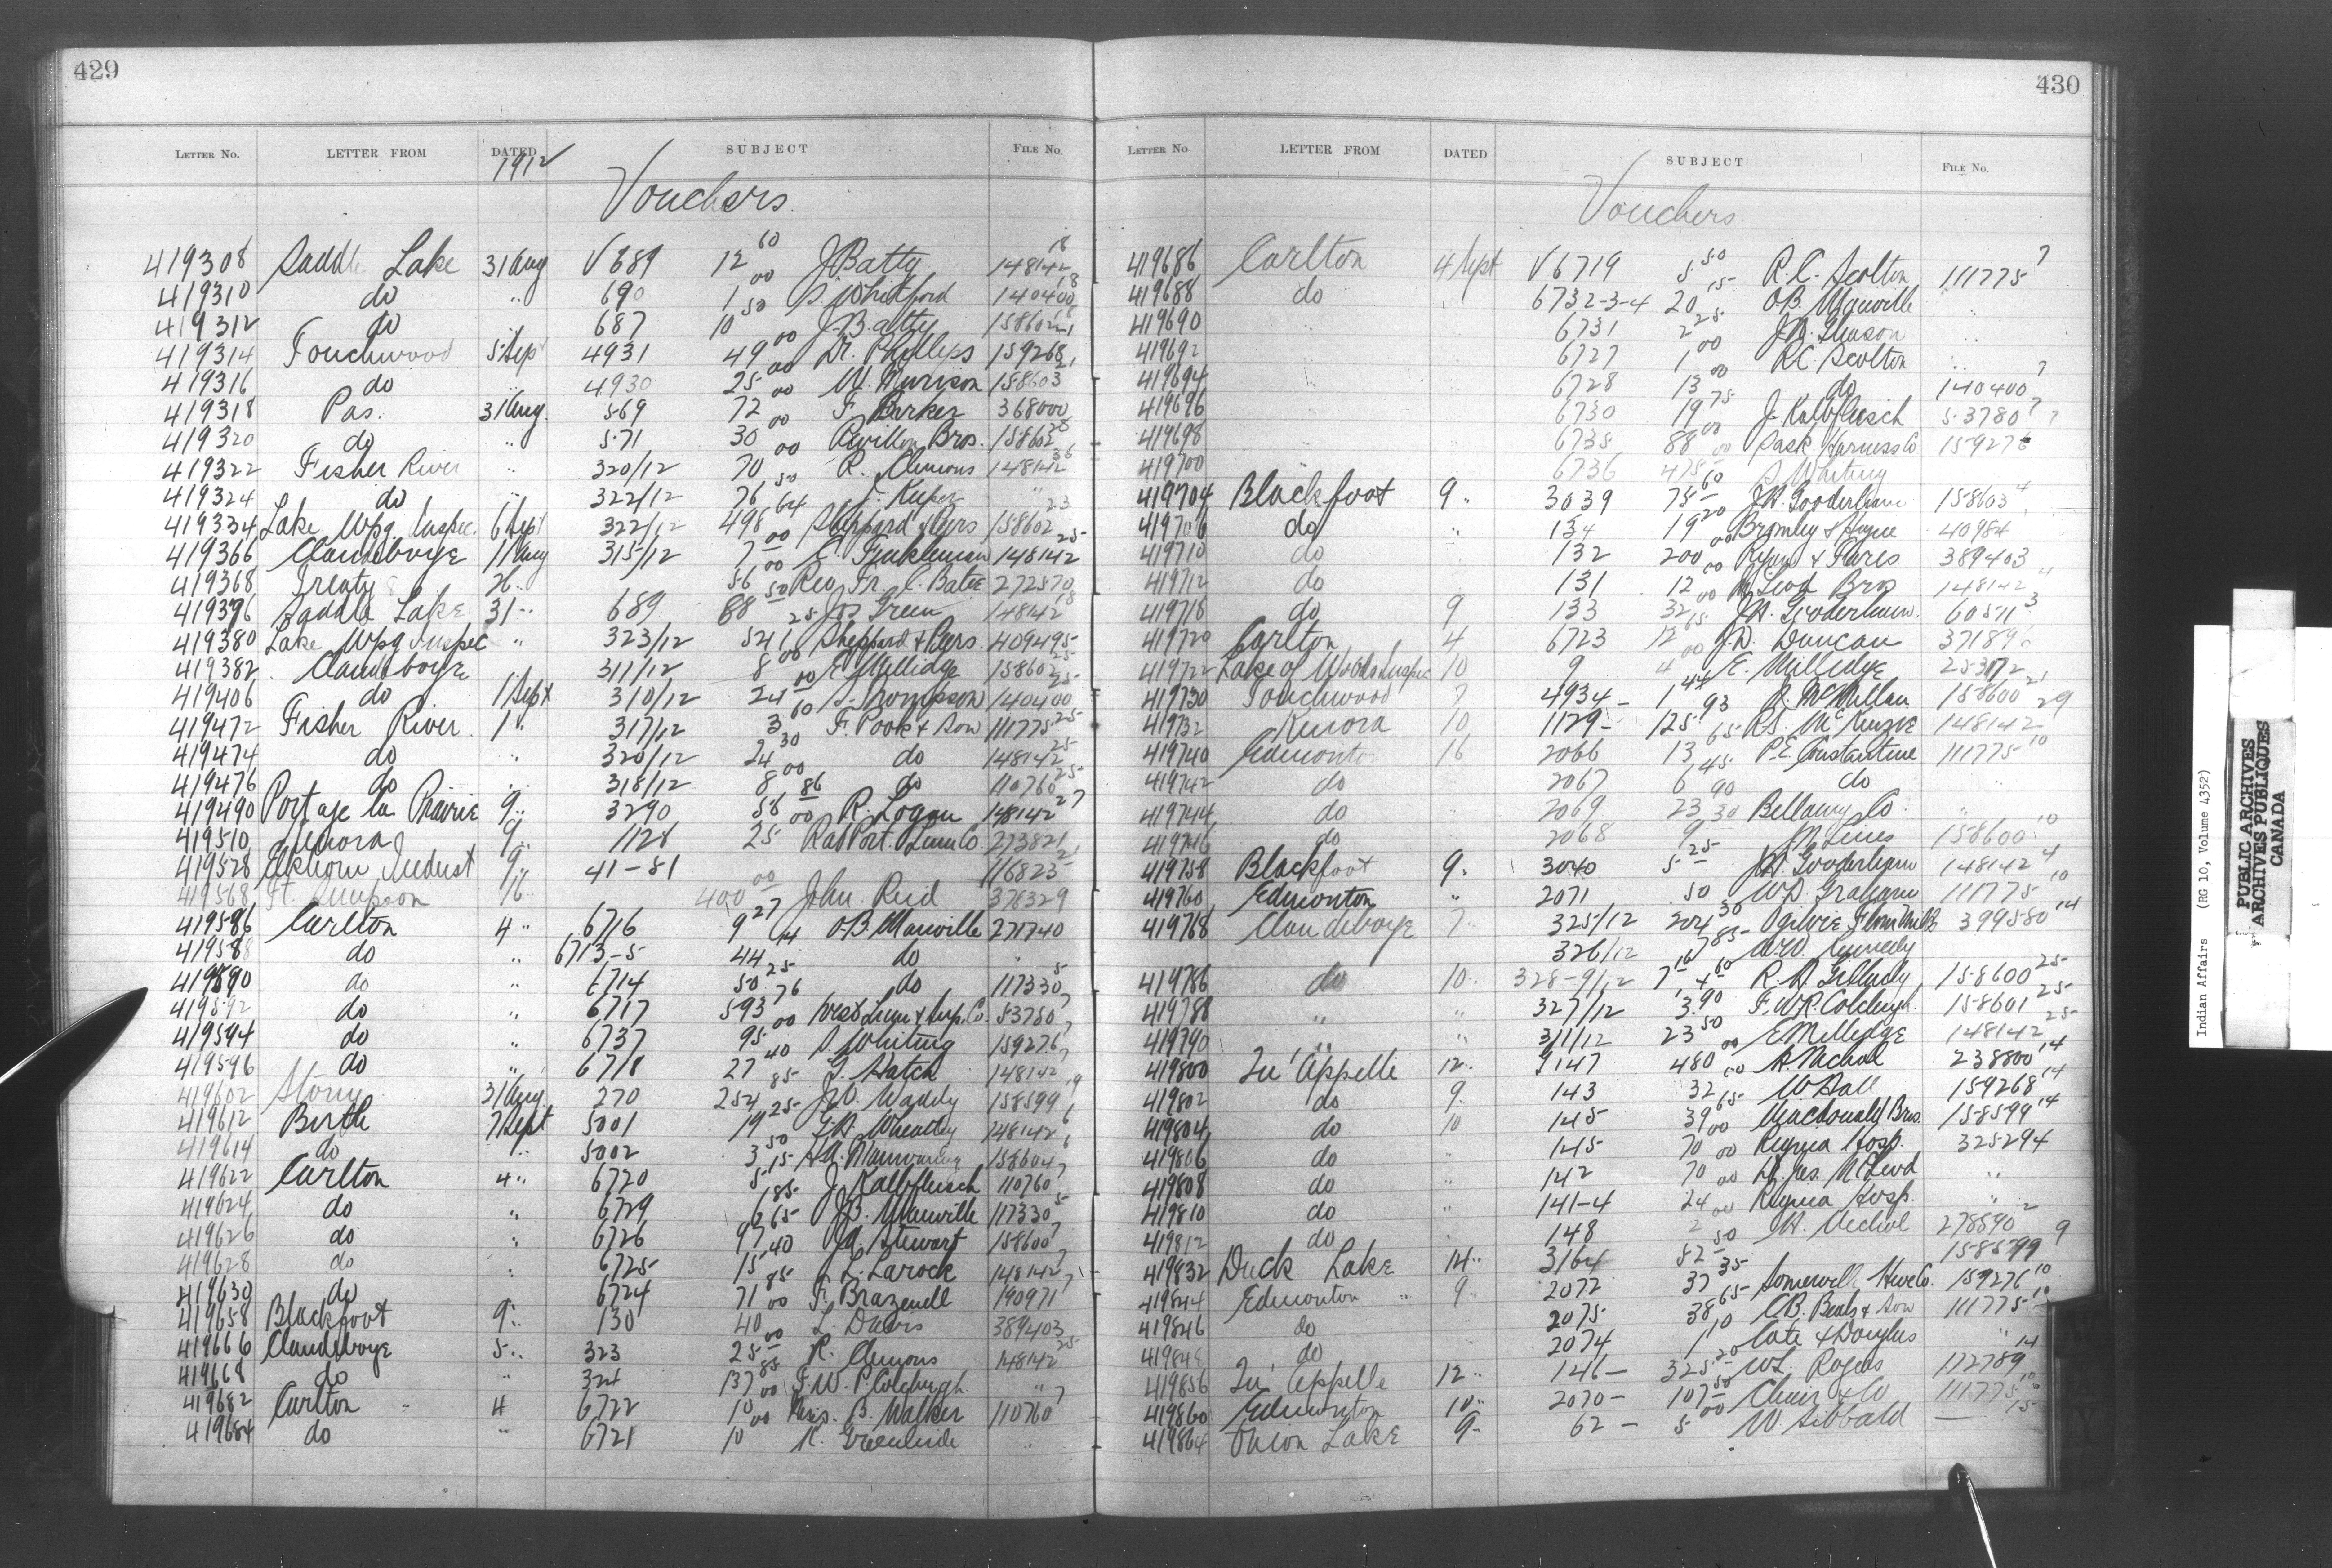 429
LETTER NO. LETTER FROM DATED SUBJECT FILE NO.
1912
Vouchers.
419308 Saddle Lake 31 Aug V 689 12 60 J Batty 148142 18
419310 do " 690 1 00 S. Whitford 140400 18
419312 do 687 10 50 J. Batty 158602 18
419314 Touchwood 5 Sep 4931 49 00 Dr. Phillips 159268 21
419316 do 4930 25 00 M. 158603 21
419318 Pas. 31 Aug. 569 72 00 F. Barker 368000
419320 do " 571 30 00 Revillon Bros. 158602 28
419322 Fisher River " 320/12 70 00 R. Clemons 148142 36
419324 do " 322/12 76 50 J. "
419334 Lake Wpg Inspec. 6 Sept 322/12 498 64 Sheppard & 158602 23
419366 Clandeboye 11 Aug 315/12 7 00 E. Finkleman 148142 25
419368 Treaty 26 " 56 00 Rev Fr. 272570
419376 Saddle Lake 31 " 689 88 50 Jos Green 148142 18
419380 Lake Wpg Inspec " 323/12 541 25 Sheppard & 409495
419382 Clandeboye 311/12 8 00 E Milledge 158602 25
419406 do 1 Sept 310/12 24 00 S. Thompson 140400 25
419472 Fisher River 1 " 317/12 3 60 F. Pook & Son 111775 25
419474 do 320/12 24 30 do 148142 25
419476 do 318/12 8 00 do 110760 25
419490 Portage la Prairie 9 " 3290 58 86 R. Logan 148142 27
419510 Kenora 9 " 1128 25 00 Rat Port. Lum Co. 273821
419528 Elkhorn Indust 9 " 41-81 116823
419568 Ft. Simpson 16 " 400 00 John Reid 378329
419586 Carlton 4 " 6716 9 27 O.B. Manville 271740
419588 do " 6713-5 44 14 do "
419590 do " 6714 50 25 do 117330 5
419592 do " 6717 593 76 West Lum & Sup. Co. 53780 7
419594 do " 6737 95 00 S. Whiting 159276 7
419596 do " 6718 27 40 L. Hatch 148142 7
419602 Stony 31 Aug. 270 254 85 J.W. Waddy 158599 19
419612 Birtle 7 Sept 5001 19 25 G.H. Wheatley 148142 6
419614 do 7 " 5002 3 50 H.A. Manwaring 158604 6
419622 Carlton 4 " 6720 5 15 J. Kalbfleisch 110760 7
419624 do " 6729 6 185 J.B. Manville 117330 5
419626 do " 6726 97 65 J.A. Stewart 158600 7
419628 do " 6725 15 40 L. Larock 148142 7
419630 do 6724 71 85 F. Brazenell 190971 7
419658 Blackfoot 9 " 130 40 00 L. Davis 389403
419666 Clandeboye 5 " 323 25 00 R. Clemons 148142 25
419668 do " 324 137 85 F.W.R. Colcleugh. "
419682 Carlton 4 6722 10 00 B. Walker 110760 7
419684 do " 6721 10 00 R. Greenleese "
430
LETTER NO. LETTER FROM DATED SUBJECT FILE NO.
Vouchers
419686 Carlton 4 Sept V 6719 5 50 R.C. Scolton 111775 7
419688 do 6732-3-4 20 15 O.B. Manville "
419690 " 6731 2 25 J.W. "
419692 " 6727 1 00 R.C. Scolton "
419694 " 6728 13 00 do 140400 7
419696 " 6730 19 75 J. Kalbfleisch 53780 7
419698 " 6735 88 00 Sask. Harness Co 159276 7
419700 6736 475 00 S Whiting
419704 Blackfoot 9 " 3039 75 60 J.H. Gooderham 158603 4
419706 do " 134 19 20 Bromley & 40984
419710 do 132 200 00 Ryan & Fares 389403
419712 do 131 12 00 McLeod Bros 148142 4
419718 do 9 133 32 00 J.H. Gooderham. 60511 3
419720 Carlton 4 6723 12 15 J.D. Duncan 37189
419722 Lake of Woods Inspec 10 9 4 00 E. Milledge
419730 Touchwood 7 4934 - 1 44 D. McMillan 158600 21
419732 Kenora 10 1129 - 125 93 R.S. McKenzie 148142 29
419740 Edmonton 16 2066 13 65 P.E. Constantine 111775 10
419742 do 2067 6 45 do "
419744 do 2069 23 90 Bellamy Co "
419746 do 2068 9 30 158600 10
419758 Blackfoot 9 " 3040 5 25 J.H. Gooderham 148142 4
419760 Edmonton " 2071 .50 W.D. Graham 111775 10
419768 Clandeboye 7 325/12 204 30 Ogilvie Flour Mills 399580 14
326/12 7 85 W.D. Kennedy
419786 do 10 " 328-9/12 7 16 4 60 R.H. Gilhuly 158600 25
419788 " " 327/12 3 90 F.W.R. Colcleugh. 158601 25
419790 " " 311/12 23 50 E Milledge 148142 25
419800 Qu'Appelle 12 " 9147 480 00 A. Nichol 238800 14
419802 do 9 143 32 00 W Hall 159268 14
419804 do 10 145 39 65 MacDonald Bros. 158599 14
419806 do " 145 70 00 Regina Hosp. 325294
419808 do " 142 70 00 Dr. Jas. McLeod "
419810 do " 141-4 24 00 Regina Hosp. "
419812 do 148 2 00 A. Nichol 278590 2
419832 Duck Lake 14 " 3164 82 50 158599 9
419844 Edmonton " 9 " 2072 37 35 Somerville Hwe Co. 159276 10
419846 do 2075 38 65 C.B. Beals & Son 111775 10
419848 do 2074 1 10 Cate & Douglas "
419856 Qu'Appelle 12 " 146 - 325 20 W.L. Rogers 112789 14
419860 Edmonton 10 " 2070 - 107 50 & Co 111775 10
419864 Onion Lake 9 " 62 - 5 00 W. Sibbald — 15
Indian Affairs (RG 10, Volume 4352)
PUBLIC ARCHIVES
ARCHIVES PUBLIQUES
CANADA